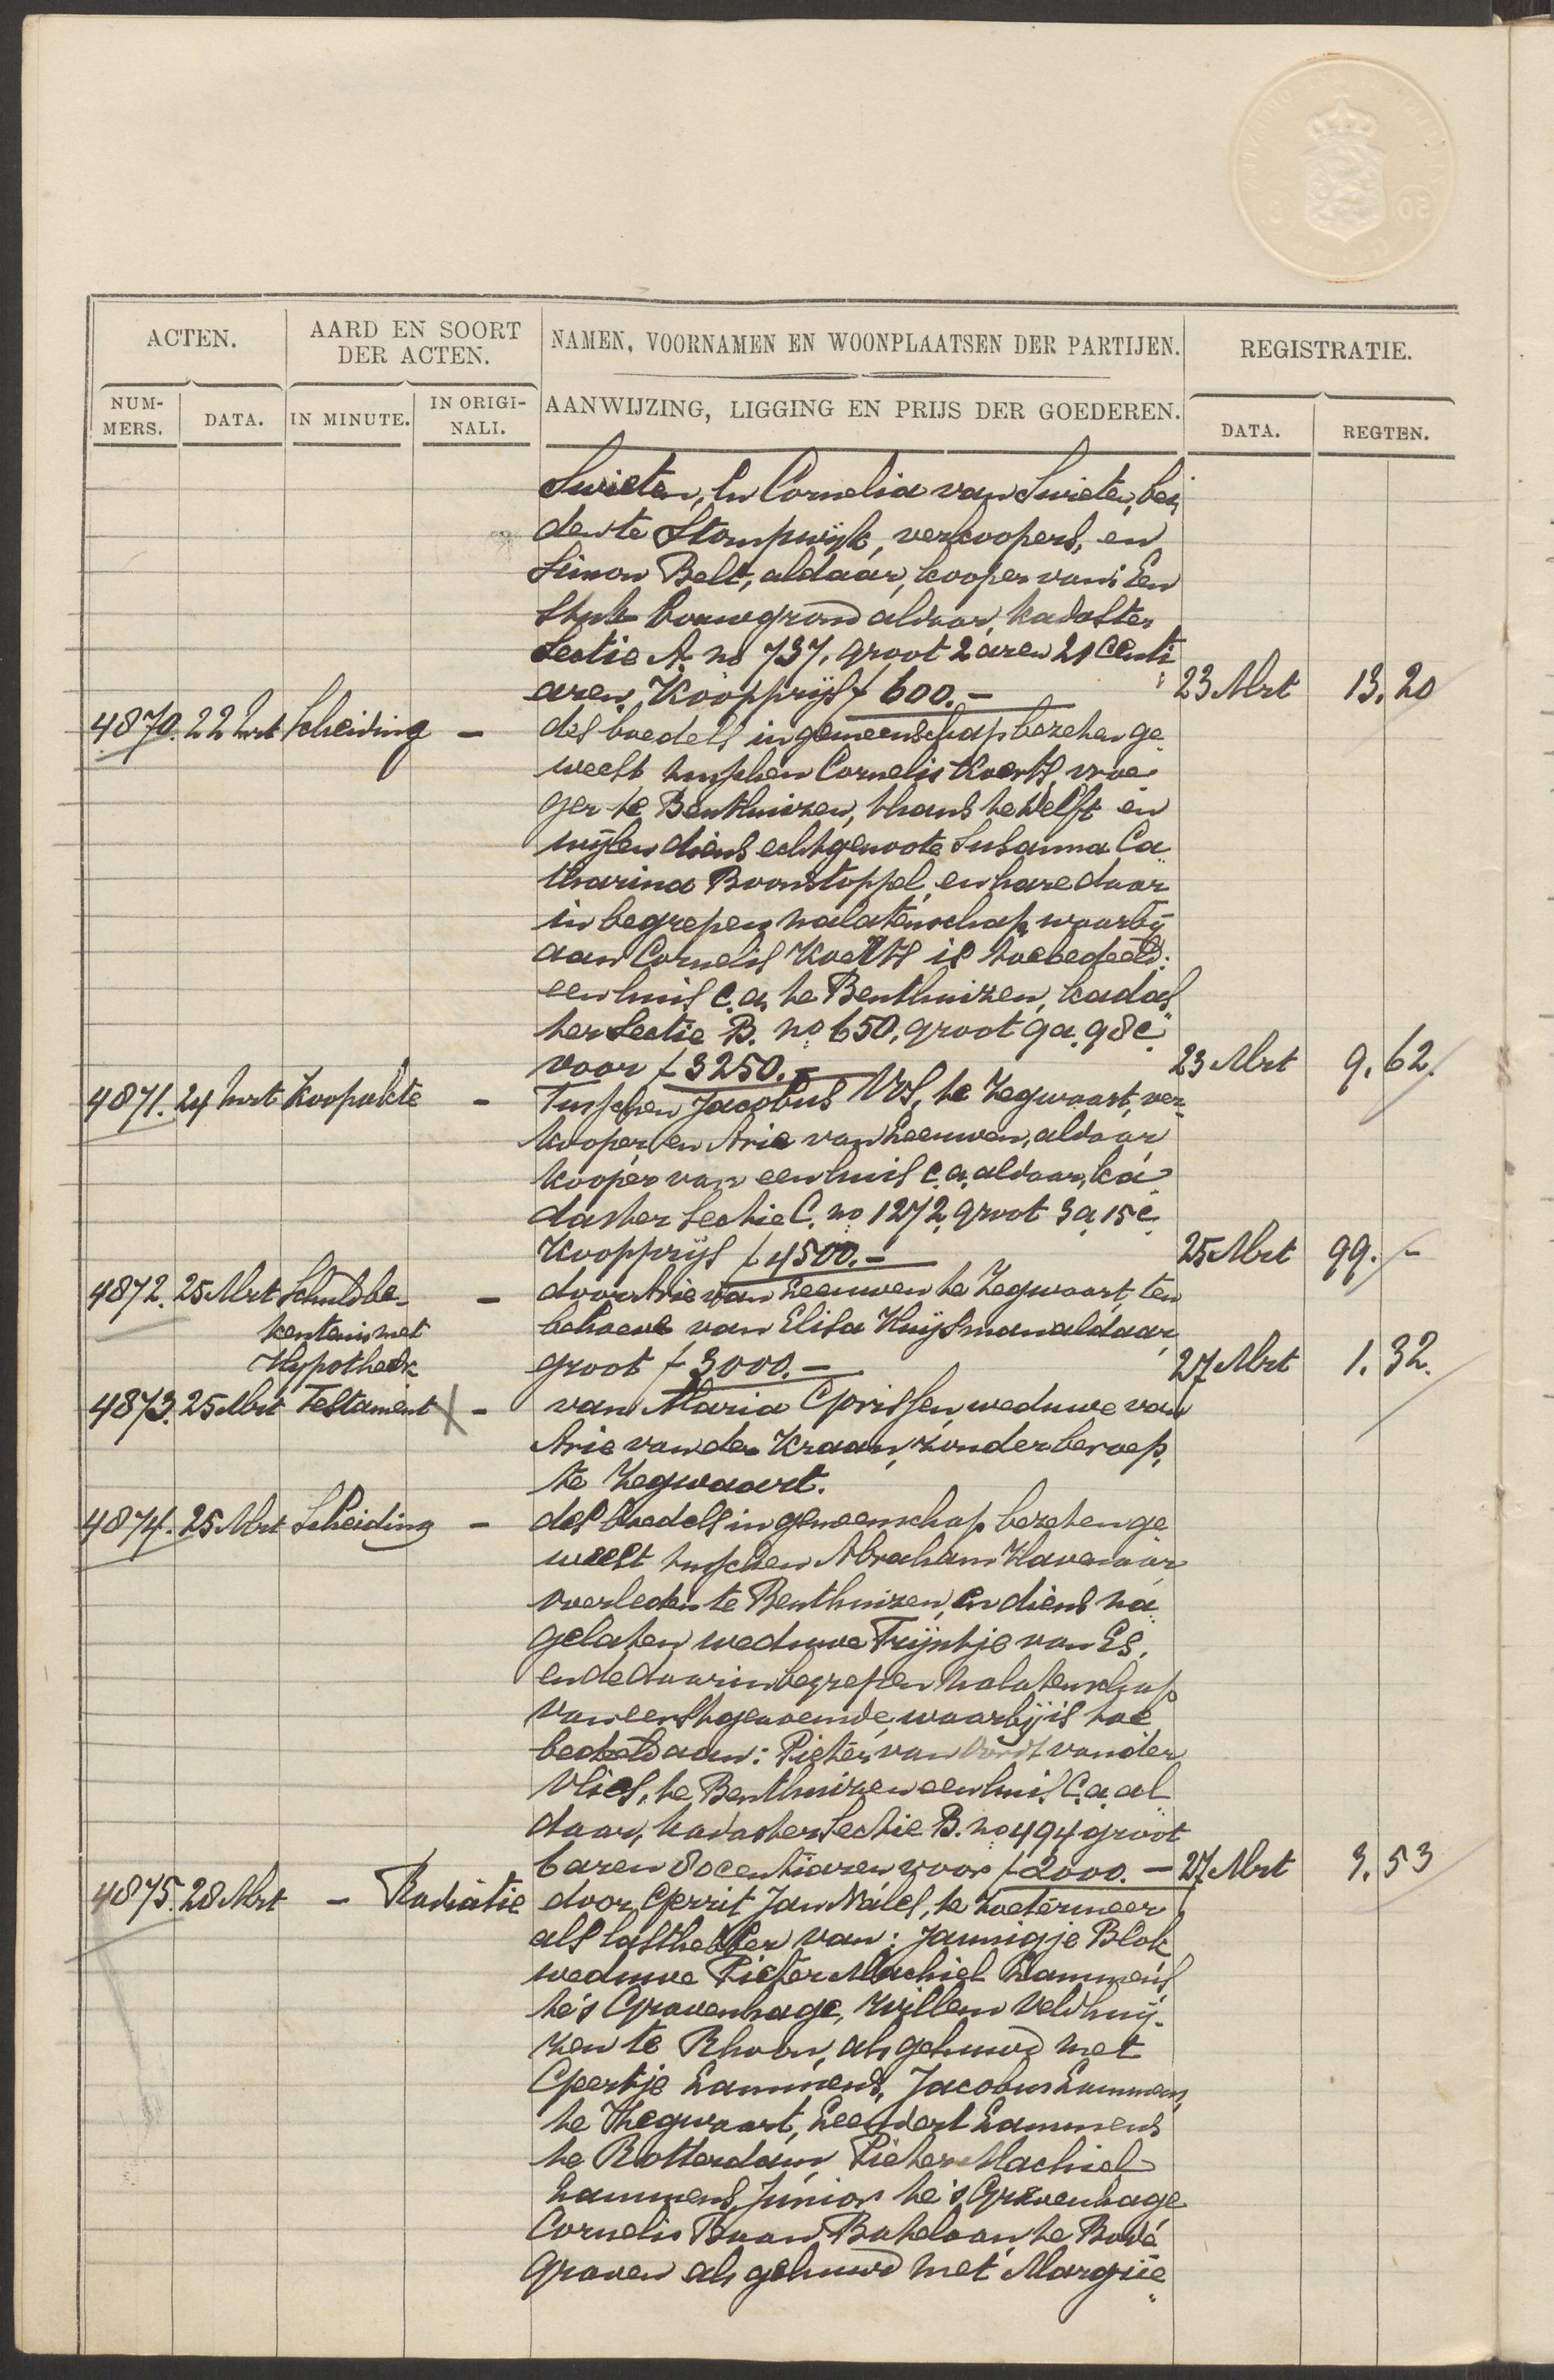 ACTEN.
AARD EN SOORT
DER ACTEN.
NAMEN, VOORNAMEN EN WOONPLAATSEN DER PARTIJEN.
REGISTRATIE.
NUM-
MERS.
DATA.
IN MINUTE.
IN ORIGI-
NALI.
AANWIJZING, LIGGING EN PRIJS DER GOEDEREN.
DATA.
REGTEN.
Swieten, En Cornelia van Swieten, bei
den te Stompwijk, verkoopers, en
Simon Belt, aldaar, kooper van: Een
Stuk bouwgrond aldaar, kadaster
Sectie A. no 737, groot 2 aren 21 centi
aren. Koopprijs f 600.- 23 Mrt 13.20
4870. 22 Mrt Scheiding - des boedels in gemeenschap bezeten ge
weest tusschen Cornelis Koerts, vroe
ger te Benthuizen, thans te Delft en
wijlen diens echtgenoote Susanna Ca
tharina Boonstoppel, en hare daar
in begrepen nalatenschap, waarbij
aan Cornelis Koerts is toebedeeld:
een huis c.a. te Benthuizen, kadas
ter Sectie B. no 650, groot 9a. 98c.
voor f 3250.- 23 Mrt 9.62.
4871. 24 Mrt Koopakte - Tusschen Jacobus Vos, te Zegwaart, ver-
kooper en Arie van Leeuwen, aldaar
kooper van een huis c.a. aldaar, ka
daster Sectie C. no 1272, groot 3a 15c.
Koopprijs f 4500.- 25 Mrt 99.-
4872. 25 Mrt Schuldbe- - door Arie van Leeuwen te Zegwaart, ten
kentenis met behoeve van Elisa Huijsman aldaar,
Hypotheek groot f 3000.- 27 Mrt 1.32.
4873. 25 Mrt Testament X - van Maria Gorissen, weduwe van
Arie van der Kraan, zonder beroep,
te Zegwaart.
4874. 25 Mrt Scheiding - des boedels in gemeenschap bezeten ge
weest tusschen Abraham Havenaar
overleden te Benthuizen, en diens na
gelaten weduwe Trijntje van Es,
en de daarin begrepen nalatenschap
van eerstgenoemde, waarbij is toe
bedeeld aan: Pieter van van der
Vlies, te Benthuizen een huis c.a. al
daar, kadaster Sectie B. no 494 groot
6 aren 80 centiaren voor f 2000.- 27 Mrt 3.53
4875. 28 Mrt - Radiatie door Gerrit Jan Nales, te Zoetermeer
als lasthebber van: Jannigje Blok
weduwe Pieter Machiel Lammens
te 's Gravenhage, Willem Veldhuij-
zen te Rhoon, als gehuwd met
Geertje Lammens, Jacobus Lammens,
te Zegwaart, Leendert Lammens
te Rotterdam, Pieter Machiel
Lammens Junior te 's Gravenhage
Cornelis Baan Batelaan, te Bode
graven als gehuwd met Margrie